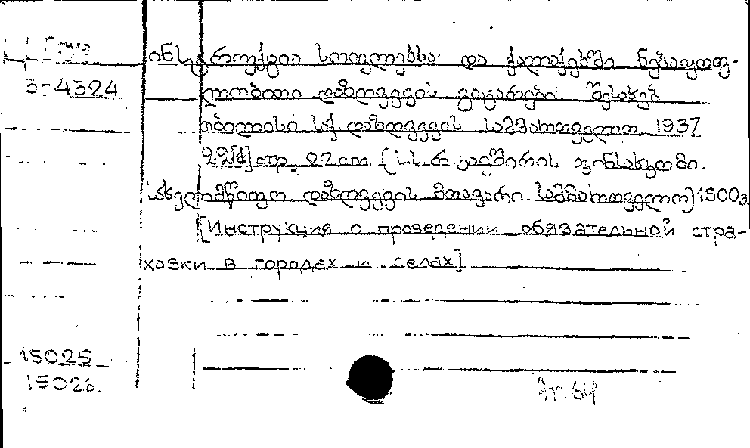 Груз
3-4324
ინსტრუქცია სოფლებსა და ქალაქებში ნებაყოფ-
ლობითი დაზღვევის გატარების შესახებ
თბილისი საქ დაზღვევის სამმართველო 1937
22[4] стр. 22 см. (ს.ს.რ. კავშირის ფინსახკომი.
სახელმწიფო დაზღვევის მთავარი სამმართველო) 1500 э
[Инструкция о проведении обязательной стра-
ховки в городах и селах]
15025
15026.